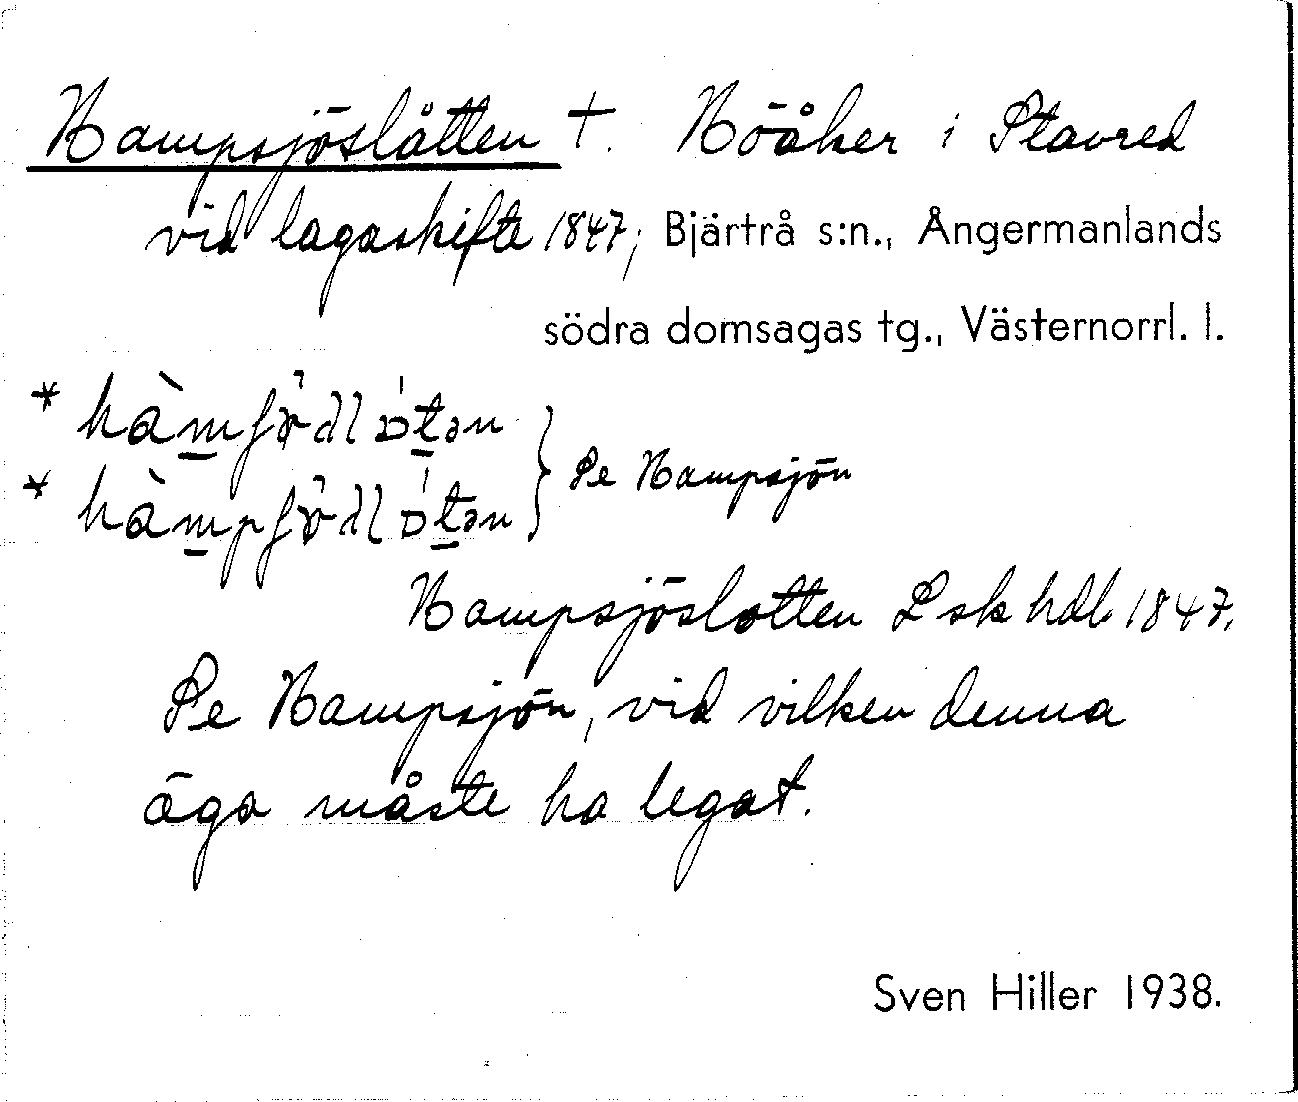 Hampsjöslåtten †. Höåker i Stavred
vid lagaskifte 1847; Bjärtrå s:n., Ångermanlands
södra domsagas tg., Västernorrl. l.
Se Hampsjön
Hampsjöslotten Lsk hdl. 1847.
Se Hampsjön, vid vilken denna
äga måste ha legat.
Sven Hiller 1938.